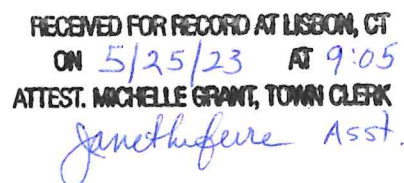 RECEIVED FOR RECORD AT LISBON, CT
ON 5/25/23 AT 9:05
ATTEST. MICHELLE GRANT, TOWN CLERK
Asst.